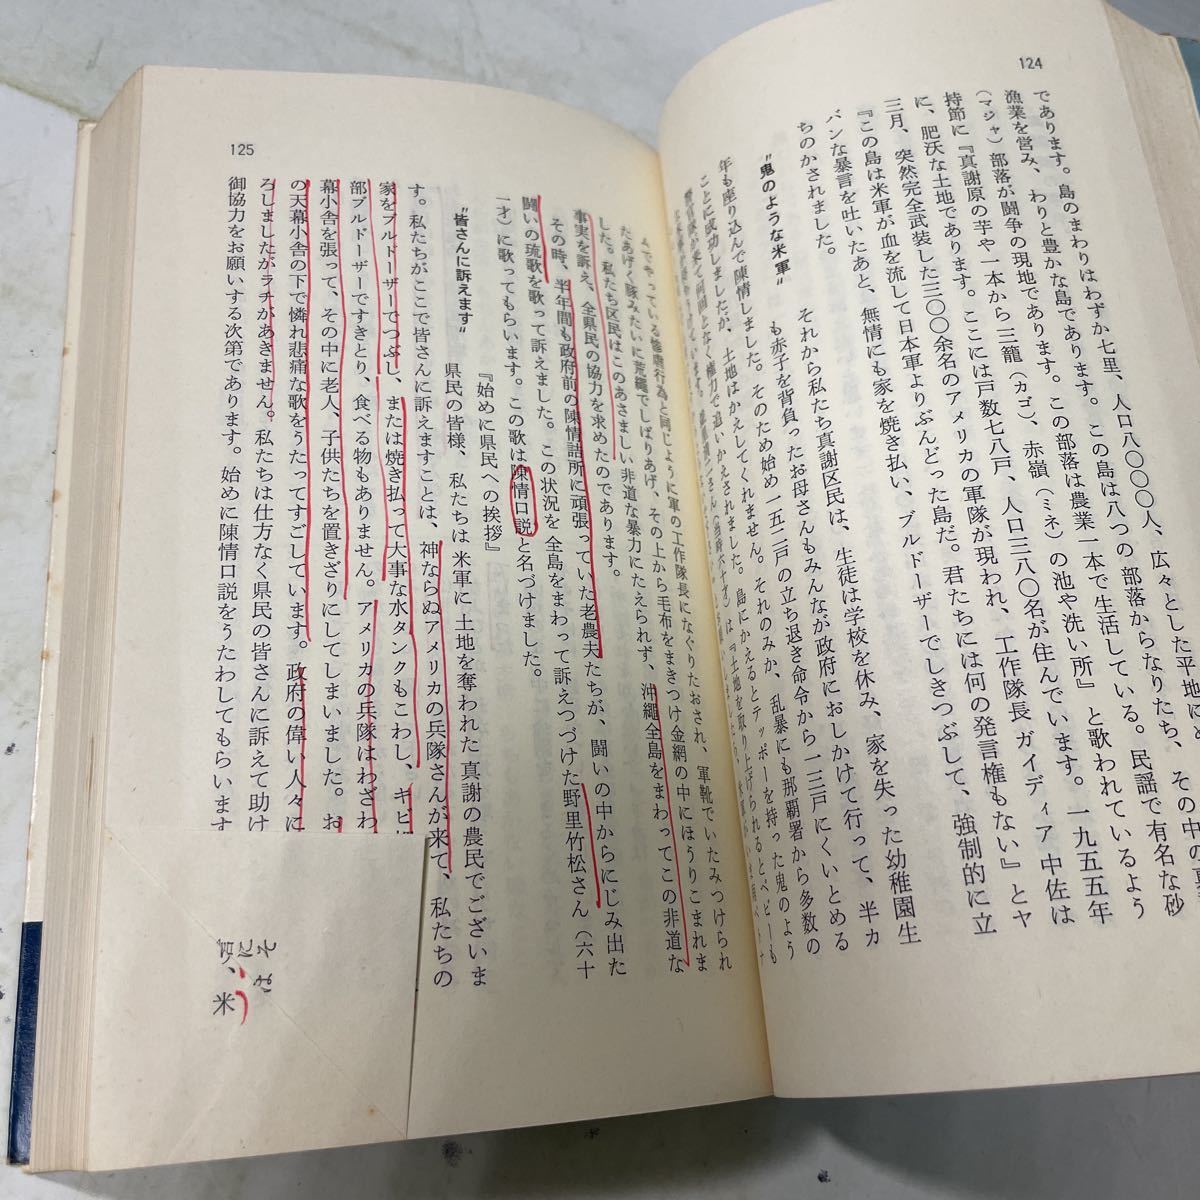 124
であります。島のまわりはわずか七里、人口八〇〇〇人、広々とした平地に
漁業を営み、わりと豊かな島であります。この島は八つの部落からなりたち、その中の真
(マジャ)部落が闘争の現地であります。この部落は農業一本で生活している。民謡で有名な砂
持節に『真謝原の芋や一本から三籠(カゴ)、赤嶺(ミネ)の池や洗い所』と歌われているよう
に、肥沃な土地であります。ここには戸数七八戸、人口三八〇名が住んでいます。一九五五年
三月、突然完全武装した三〇〇余名のアメリカの軍隊が現われ、工作隊長ガイディア中佐は
『この島は米軍が血を流して日本軍よりぶんどった島だ。君たちには何の発言権もない』とヤ
バンな暴言を吐いたあと、無情にも家を焼き払い、ブルドーザーでしきつぶして、強制的に立
ちのかされました。
"鬼のような米軍"
それから私たち真謝区民は、生徒は学校を休み、家を失った幼稚園生
も赤子を背負ったお母さんもみんなが政府におしかけて行って、半カ
年も座り込んで陳情しました。そのため始め一五二戸の立ち退き命令から一三戸にくいとめる
ことに成功しましたが、土地はかえしてくれません。それのみか、乱暴にも那覇署から多数の
125
みでやっている
行為と同じように軍の工作隊長になぐりたおされ、軍靴でいたみつけられ
たあげく豚みたいに荒縄でしばりあげ、その上から毛布をまきつけ金網の中にほうりこまれま
した。私たち区民はこのあさましい非道な暴力にたえられず、沖縄全島をまわってこの非道な
事実を訴え、全県民の協力を求めたのであります。
その時、半年間も政府前の陳情詰所に頑張っていた老農夫たちが、闘いの中からにじみ出た
闘いの琉歌を歌って訴えました。この状況を全島をまわって訴えつづけた野里竹松さん(六十
一才)に歌ってもらいます。この歌は陳情口説と名づけました。
"皆さんに訴えます"
『始めに県民への挨拶』
県民の皆様、私たちは米軍に土地を奪われた真謝の農民でございま
す。私たちがここで皆さんに訴えますことは、神ならぬアメリカの兵隊さんが来て、私たちの
家をブルドーザーでつぶし、または焼き払って大事な水タンクもこわし、キビ
部ブルドーザーですきとり、食べる物もありません。アメリカの兵隊はわざわ
幕小舎を張って、その中に老人、子供たちを置きざりにしてしまいました。お
の天幕小舎の下で憐れ悲痛な歌をうたってすごしています。政府の偉い人々に
ろしましたがラチがあきません。私たちは仕方なく県民の皆さんに訴えて助け
御協力をお願いする次第であります。始めに陳情口説をうたわしてもらいます
はそ
に
、米